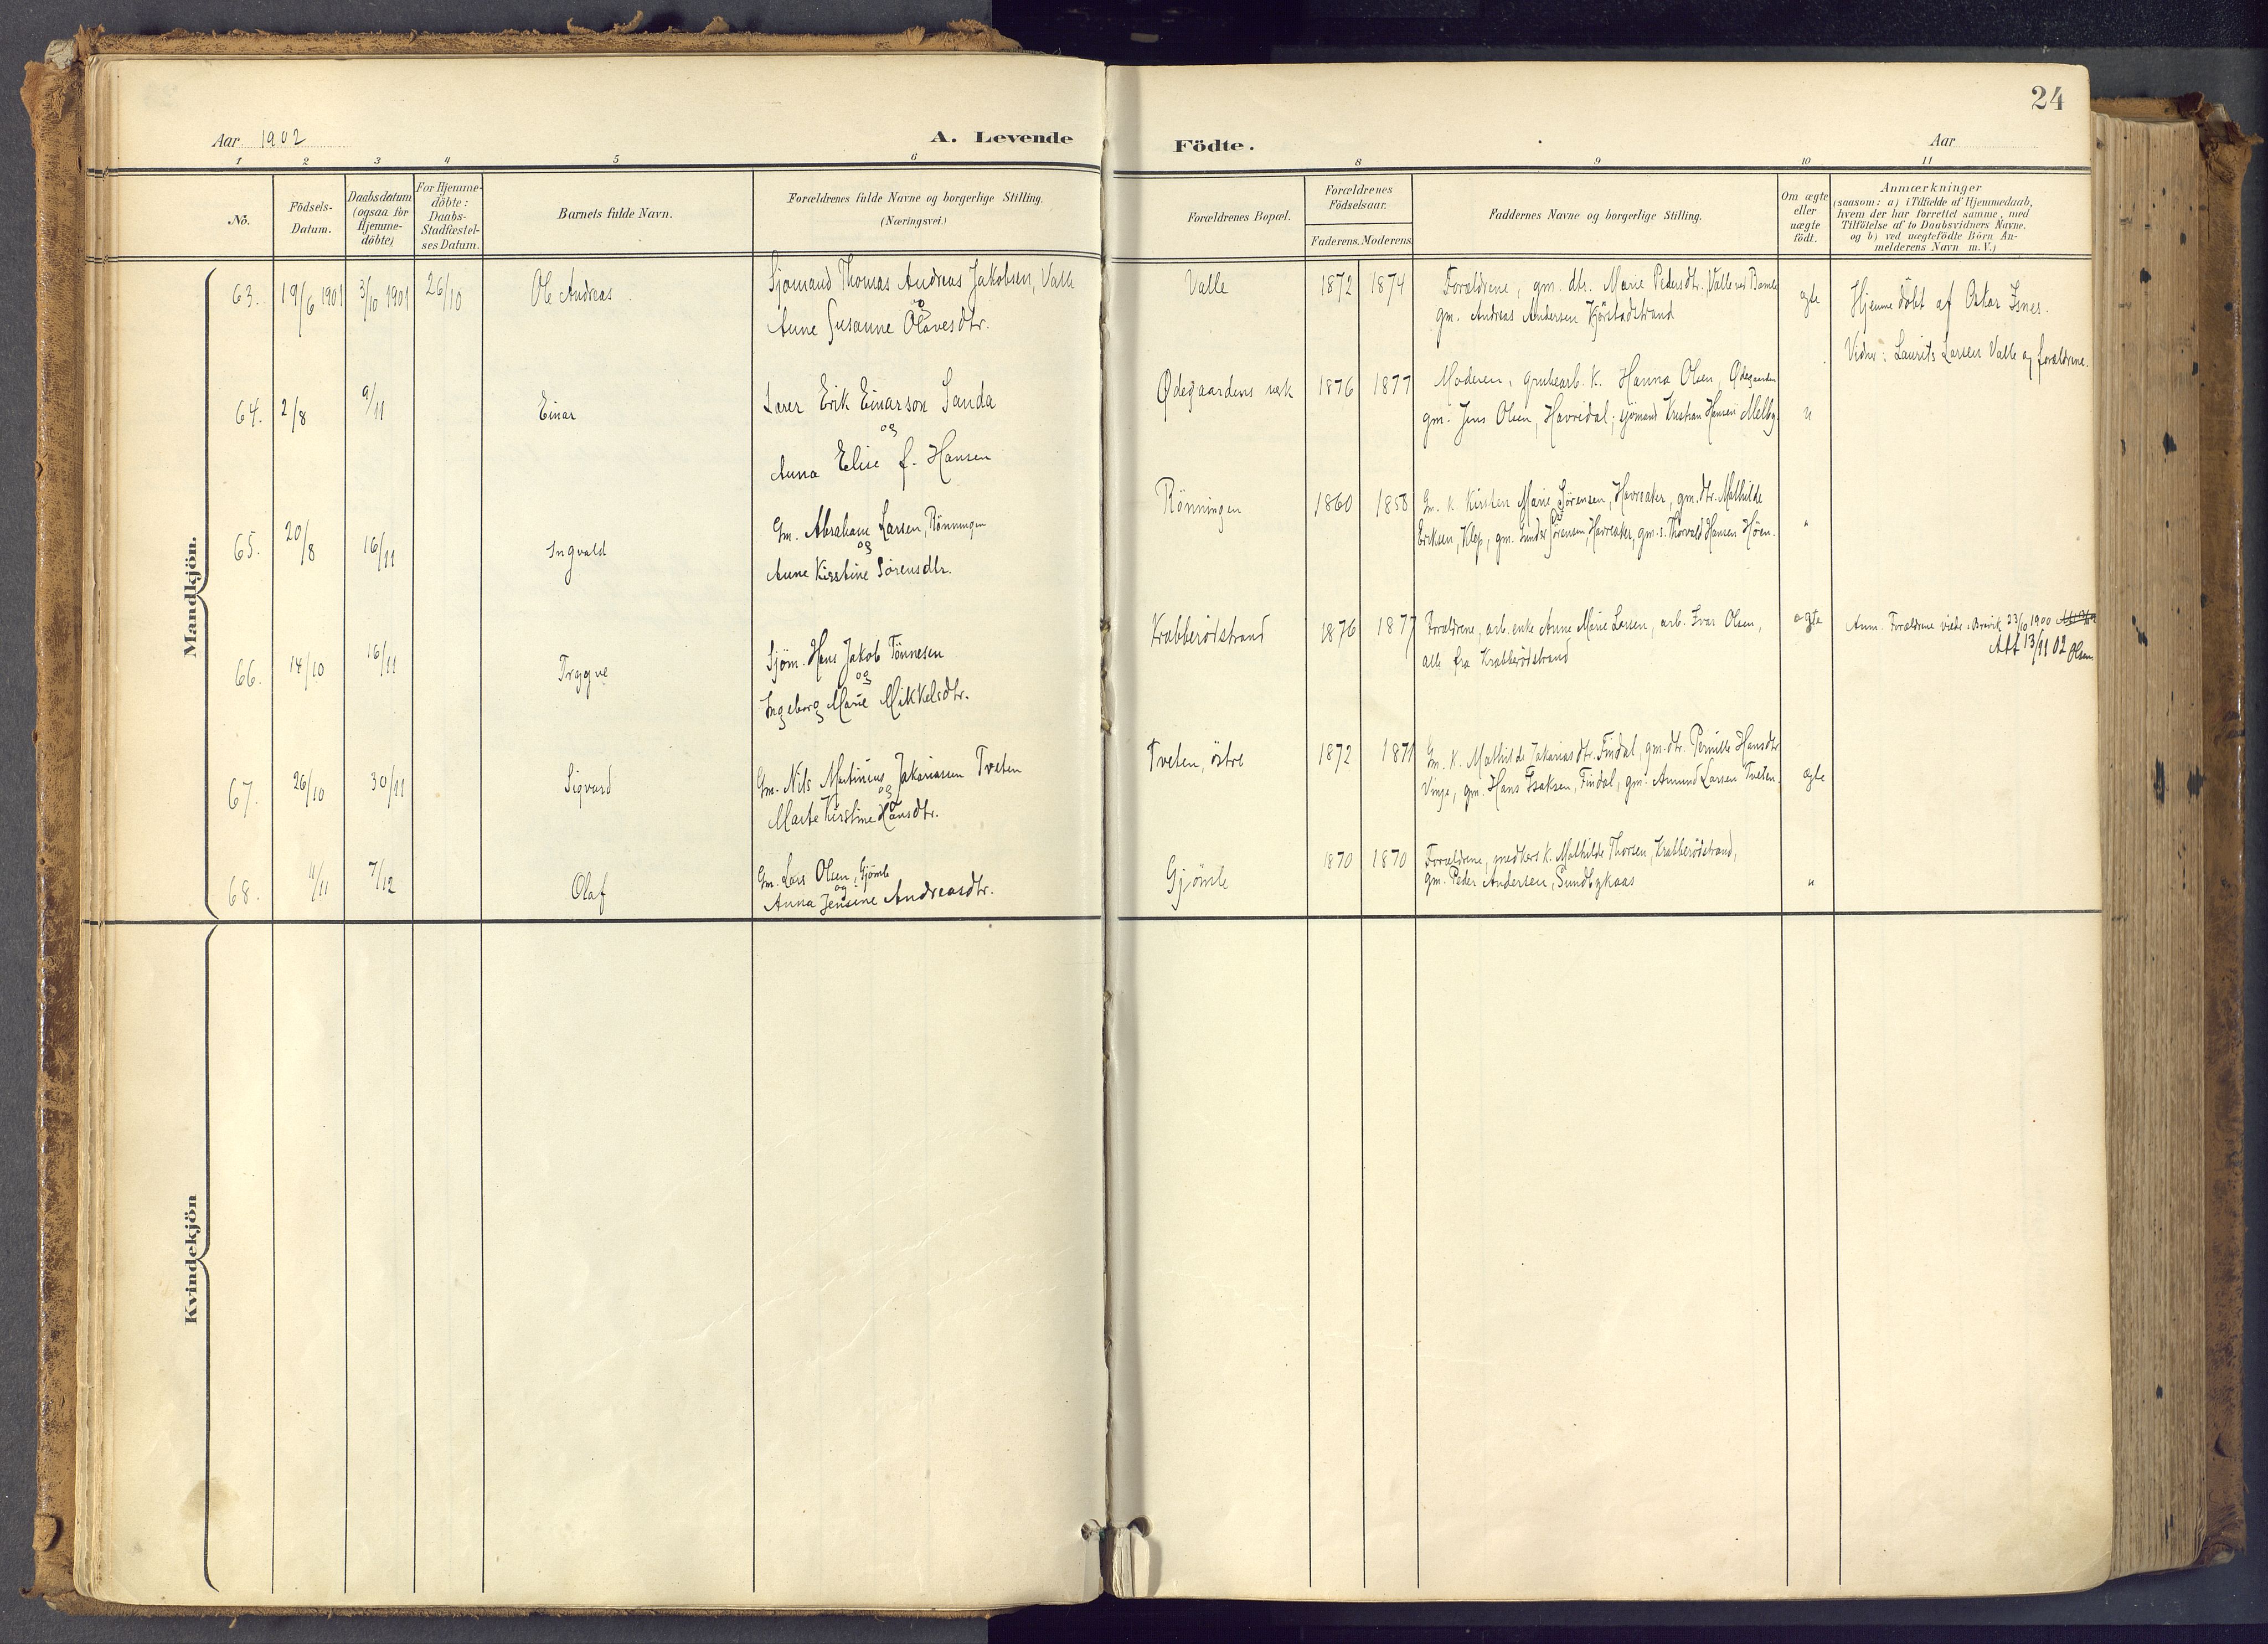 24
Aar 1902
A. Levende
Födte.
Aar
1 2 3 4 5 6 8 9 10 11
No.
Födsels-
Datum.
Daabsdatum
(ogsaa for
Hjemme-
döbte)
For Hjemme-
döbte:
Daabs-
Stadfæstel-
ses Datum.
Barnets fulde Navn.
Forældrenes fulde Navne og borgerlige Stilling.
(Næringsvei.)
Forældrenes Bopæl.
Forældrenes
Födselsaar.
Faderens. Moderens.
Faddernes Navne og borgerlige Stilling.
Om ægte
eller
uægte
födt.
Anmærkninger
(saasom: a) i Tilfælde af Hjemmedaab,
hvem der har forrettet samme, med
Tilföielse af to Daabsvidners Navne,
og b) ved uægtefödte Börn An-
melderens Navn m. V.)
Mandkjön.
63. 19/6 1901 3/10 1901 26/10 Ole Andreas
Sjömand Thomas Andreas Jakobsen, Valle
og
Anne Susanne Olavesdtr.
Valle 1872 1874
Forældrene, gm. dtr. Marie Pedersdtr., Valle ved Bamle
gm. Andreas Andersen Kjörstadstrand
ægte
Hjemmedöbt af Oskar Isnes.
Vidner: Laurits Larsen Valle og forældrene.
64. 2/8 9/11 Einar
Lærer Erik Einarson Sanda
og
Anna Elise f. Hansen
Ødegaardens værk 1876 1877
Moderen, grubearb. K. Hanna Olsen, Ødegaarden
gm. Jens Olsen, Havredal; sjömand Kristian Hansen Melby.
"
65. 20/8 16/11 Ingvald
Gm. Abraham Larsen, Rönningen
og
Anne Kirstine Sörensdtr.
Rönningen 1860 1858
Gm. K. Kirsten Marie Sörensen, Havreaker, gm. dtr. Mathilde
Eriksen, Klep, gm. Gunder Sörensen, Havreaker, gm. s. Thorvald Hansen Höen.
"
66. 14/10 16/11 Trygve
Sjöm. Hans Jakob Tönnesen
og
Ingeborg Marie Mikkelsdtr.
Krabberödstrand 1876 1877
Forældrene, arb. enke Anne Marie Larsen, arb. Ivar Olsen,
alle fra Krabberödstrand
ægte
Anm. Forældrene viede i Brevik 23/10 1900
Att 13/11 02 Olsen
67. 26/10 30/11 Sigvard
Gm. Nils Martinius Jakariassen Tveten
og
Marte Kirstine Hansdtr.
Tveten, östre 1872 1871
Gm. K. Mathilde Jakariasdtr. Findal, gm. dtr. Pernille Hansdtr
Vinje, gm. Hans Isaksen, Findal, gm. Amund Larsen Tveten.
ægte
68. 11/11 7/12 Olaf
Gm. Lars Olsen, Gjömle
og
Anna Jensine Andreasdtr.
Gjömle 1870 1870
Forældrene, snedkers K. Mathilde Thorsen, Krabberödstrand,
gm. Peder Andersen, Sundbykaas
"
Kvindekjön